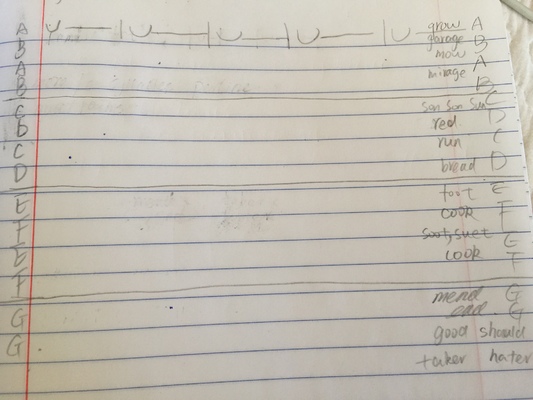 A U — | U — | U — | U — | U — grow A
B garage B
A mow A
B mirage B
C son son sun C
D red D
C run C
D bread D
E foot E
F cook F
E soot, suet E
F look F
G mend G
G end G
good should
taker hater